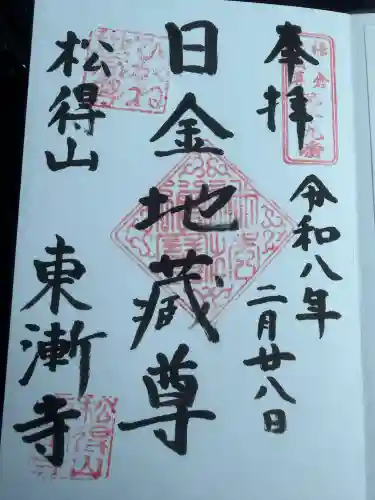 奉拝
令和八年
二月廿八日
日金地蔵尊
松得山
東漸寺
松得山